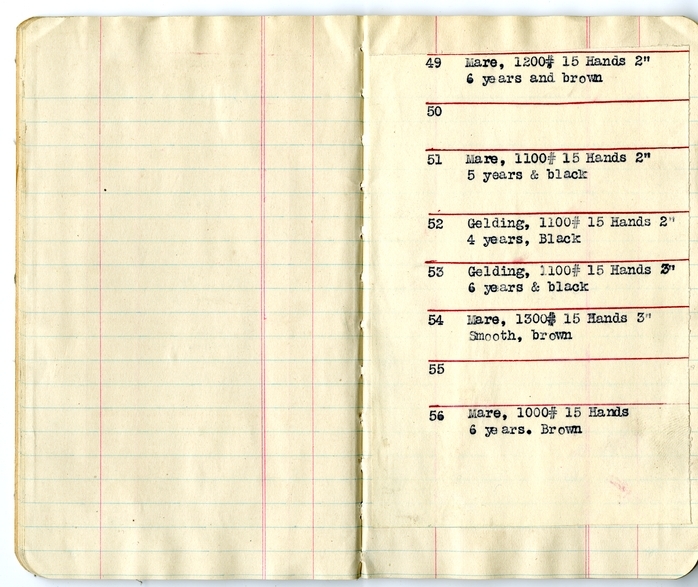 49 Mare, 1200# 15 Hands 2"
6 years and brown
50
51 Mare, 1100# 15 Hands 2"
5 years & black
52 Gelding, 1100# 15 Hands 2"
4 years, Black
53 Gelding, 1100# 15 Hands 3"
6 years & black
54 Mare, 1300# 15 Hands 3"
Smooth, brown
55
56 Mare, 1000# 15 Hands
6 years. Brown